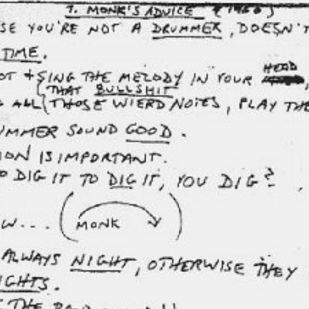 T. MONK'S ADVICE (1960)
SE YOU'RE NOT A DRUMMER, DOESN'T
TIME.
OT + SING THE MELODY IN YOUR HEAD,
THAT BULLSHIT
ALL THOSE WIERD NOTES, PLAY THE
UMMER SOUND GOOD.
ION IS IMPORTANT.
O DIG IT TO DIG IT, YOU DIG?
W... (MONK)
ALWAYS NIGHT, OTHERWISE THEY
IGHTS.
THE